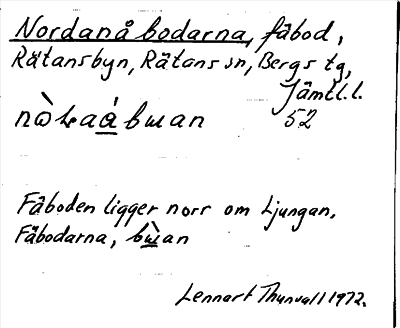 Nordanåbodarna, fäbod,
Rätansbyn, Rätans sn, Bergs tg,
Jämtl. l.
52
Fäboden ligger norr om Ljungan.
Fäbodarna,
Lennart Thunvall 1972.